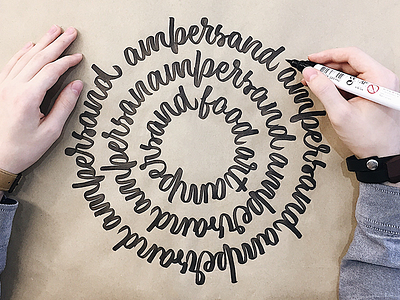 ampersand ampersand ampersand ampersand ampersand
ampersand ampersand ampersand
ampersand food art